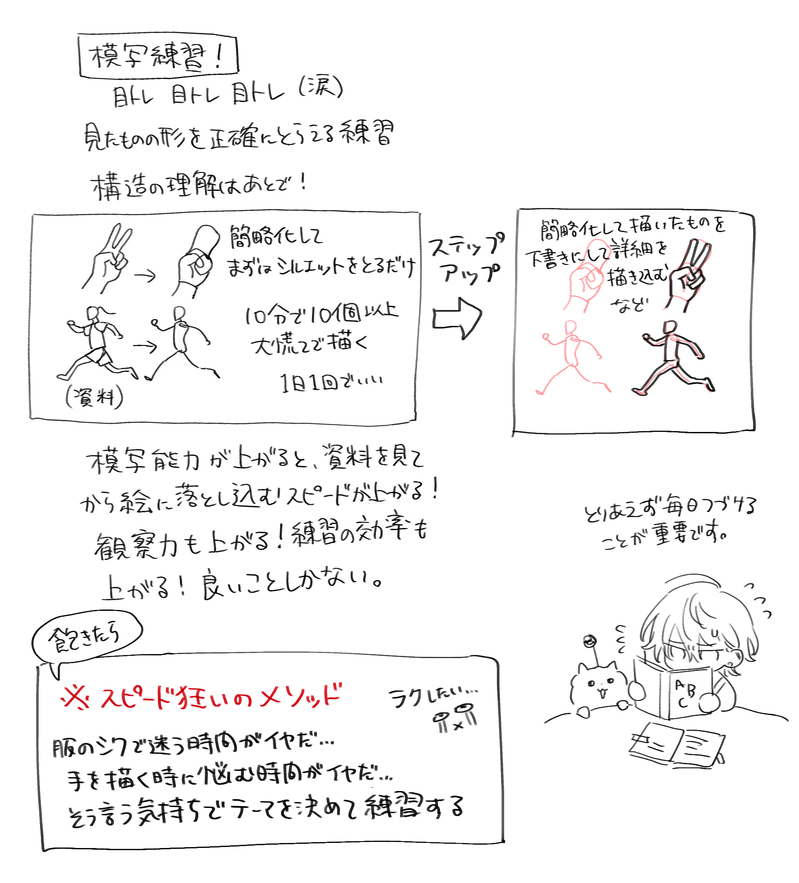 模写練習！
目トレ 目トレ 目トレ (涙)
見たものの形を正確にとらえる練習
構造の理解はあとで！
簡略化して
まずはシルエットをとるだけ
10分で10個以上
大慌てで描く
1日1回でいい
(資料)
ステップ
アップ
簡略化して描いたものを
下書きにして詳細を
描き込む
など
模写能力が上がると、資料を見て
から絵に落とし込むスピードが上がる！
観察力も上がる！練習の効率も
上がる！良いことしかない。
とりあえず毎日つづける
ことが重要です。
A B
C
飽きたら
※スピード狂いのメソッド
ラクしたい…
服のシワで迷う時間がイヤだ…
手を描く時に悩む時間がイヤだ…
そう言う気持ちでテーマを決めて練習する